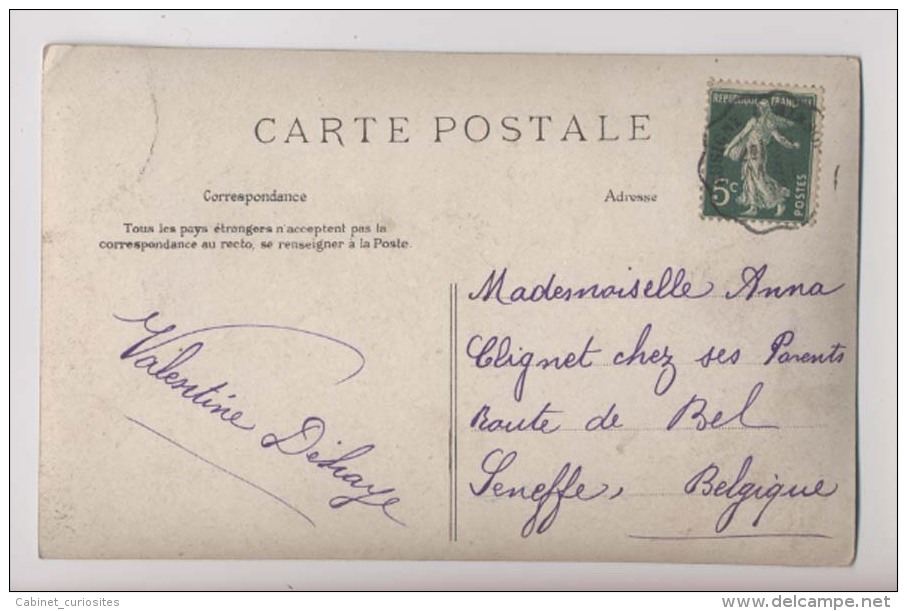 CARTE POSTALE
REPUBLIQUE FRANÇAISE
5c
POSTES
Correspondance
Adresse
Tous les pays étrangers n'acceptent pas la
correspondance au recto, se renseigner à la Poste.
Valentine Déhaye
Mademoiselle Anna
Clignet chez ses Parents
Route de Bel
Seneffe, Belgique
Cabinet_curiosites
www.delcampe.net